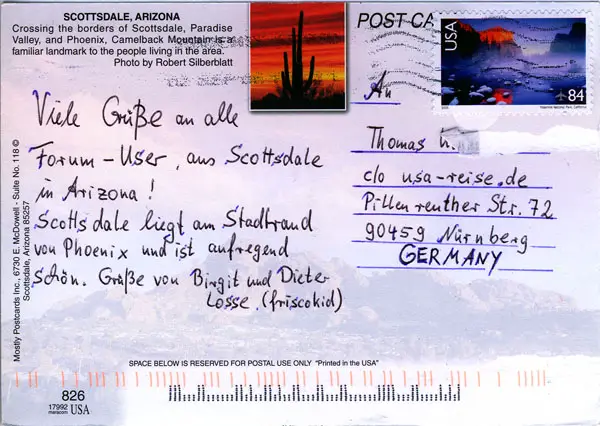 SCOTTSDALE, ARIZONA
Crossing the borders of Scottsdale, Paradise
Valley, and Phoenix, Camelback Mountain is a
familiar landmark to the people living in the area.
Photo by Robert Silberblatt
POST CA
USA
84
Viele Grüße an alle
Forum-User, aus Scottsdale
in Arizona!
Scottsdale liegt am Stadtrand
von Phoenix und ist aufregend
schön. Grüße von Birgit und Dieter
Losse. (friscokid)
An
Thomas
c/o usa-reise.de
Pillenreuther Str. 72
90459 Nürnberg
GERMANY
Mostly Postcards Inc., 6730 E. McDowell - Suite No. 118 ©
Scottsdale, Arizona 85257
SPACE BELOW IS RESERVED FOR POSTAL USE ONLY "Printed in the USA"
826
17992 USA